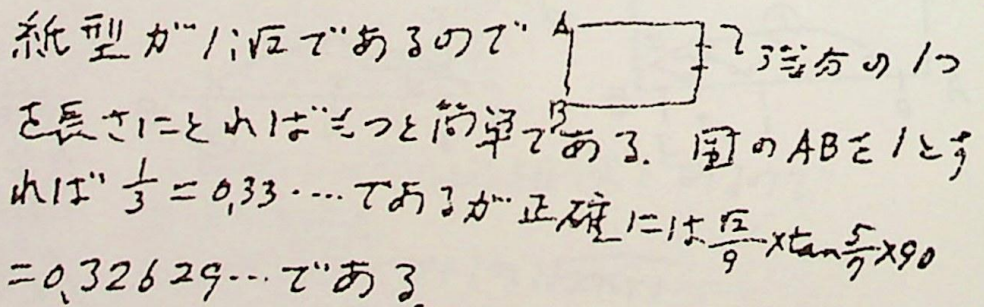 紙型が1:√2であるので A B 3等分の1つ
を長さにとればもっと簡単である. 図のABを1とす
れば 1/3 = 0,33・・・・であるが正確には √2/9 × tan 5/7 × 90
= 0,32629・・・である.